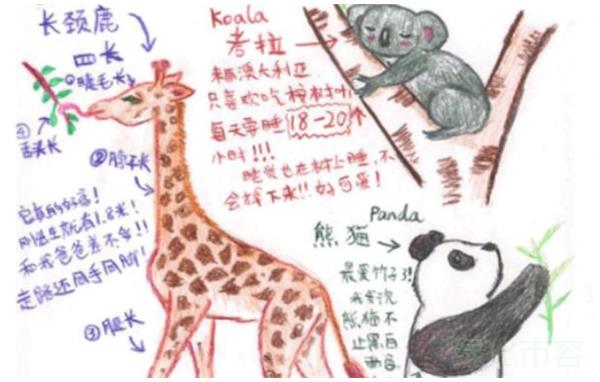 长颈鹿
四长
①睫毛长
④
舌头长
②脖子长
它真的好高!
刚出生就有1.8米!
和我爸爸差不多!!
走路还同手同脚!
③腿长
Koala
考拉
来自澳大利亚
只喜欢吃桉树叶
每天要睡18-20
小时!!!
睡觉也在树上睡,不
会掉下来!!好可爱!
Panda
熊猫
最爱竹子了!
熊猫不
止黑白
两色